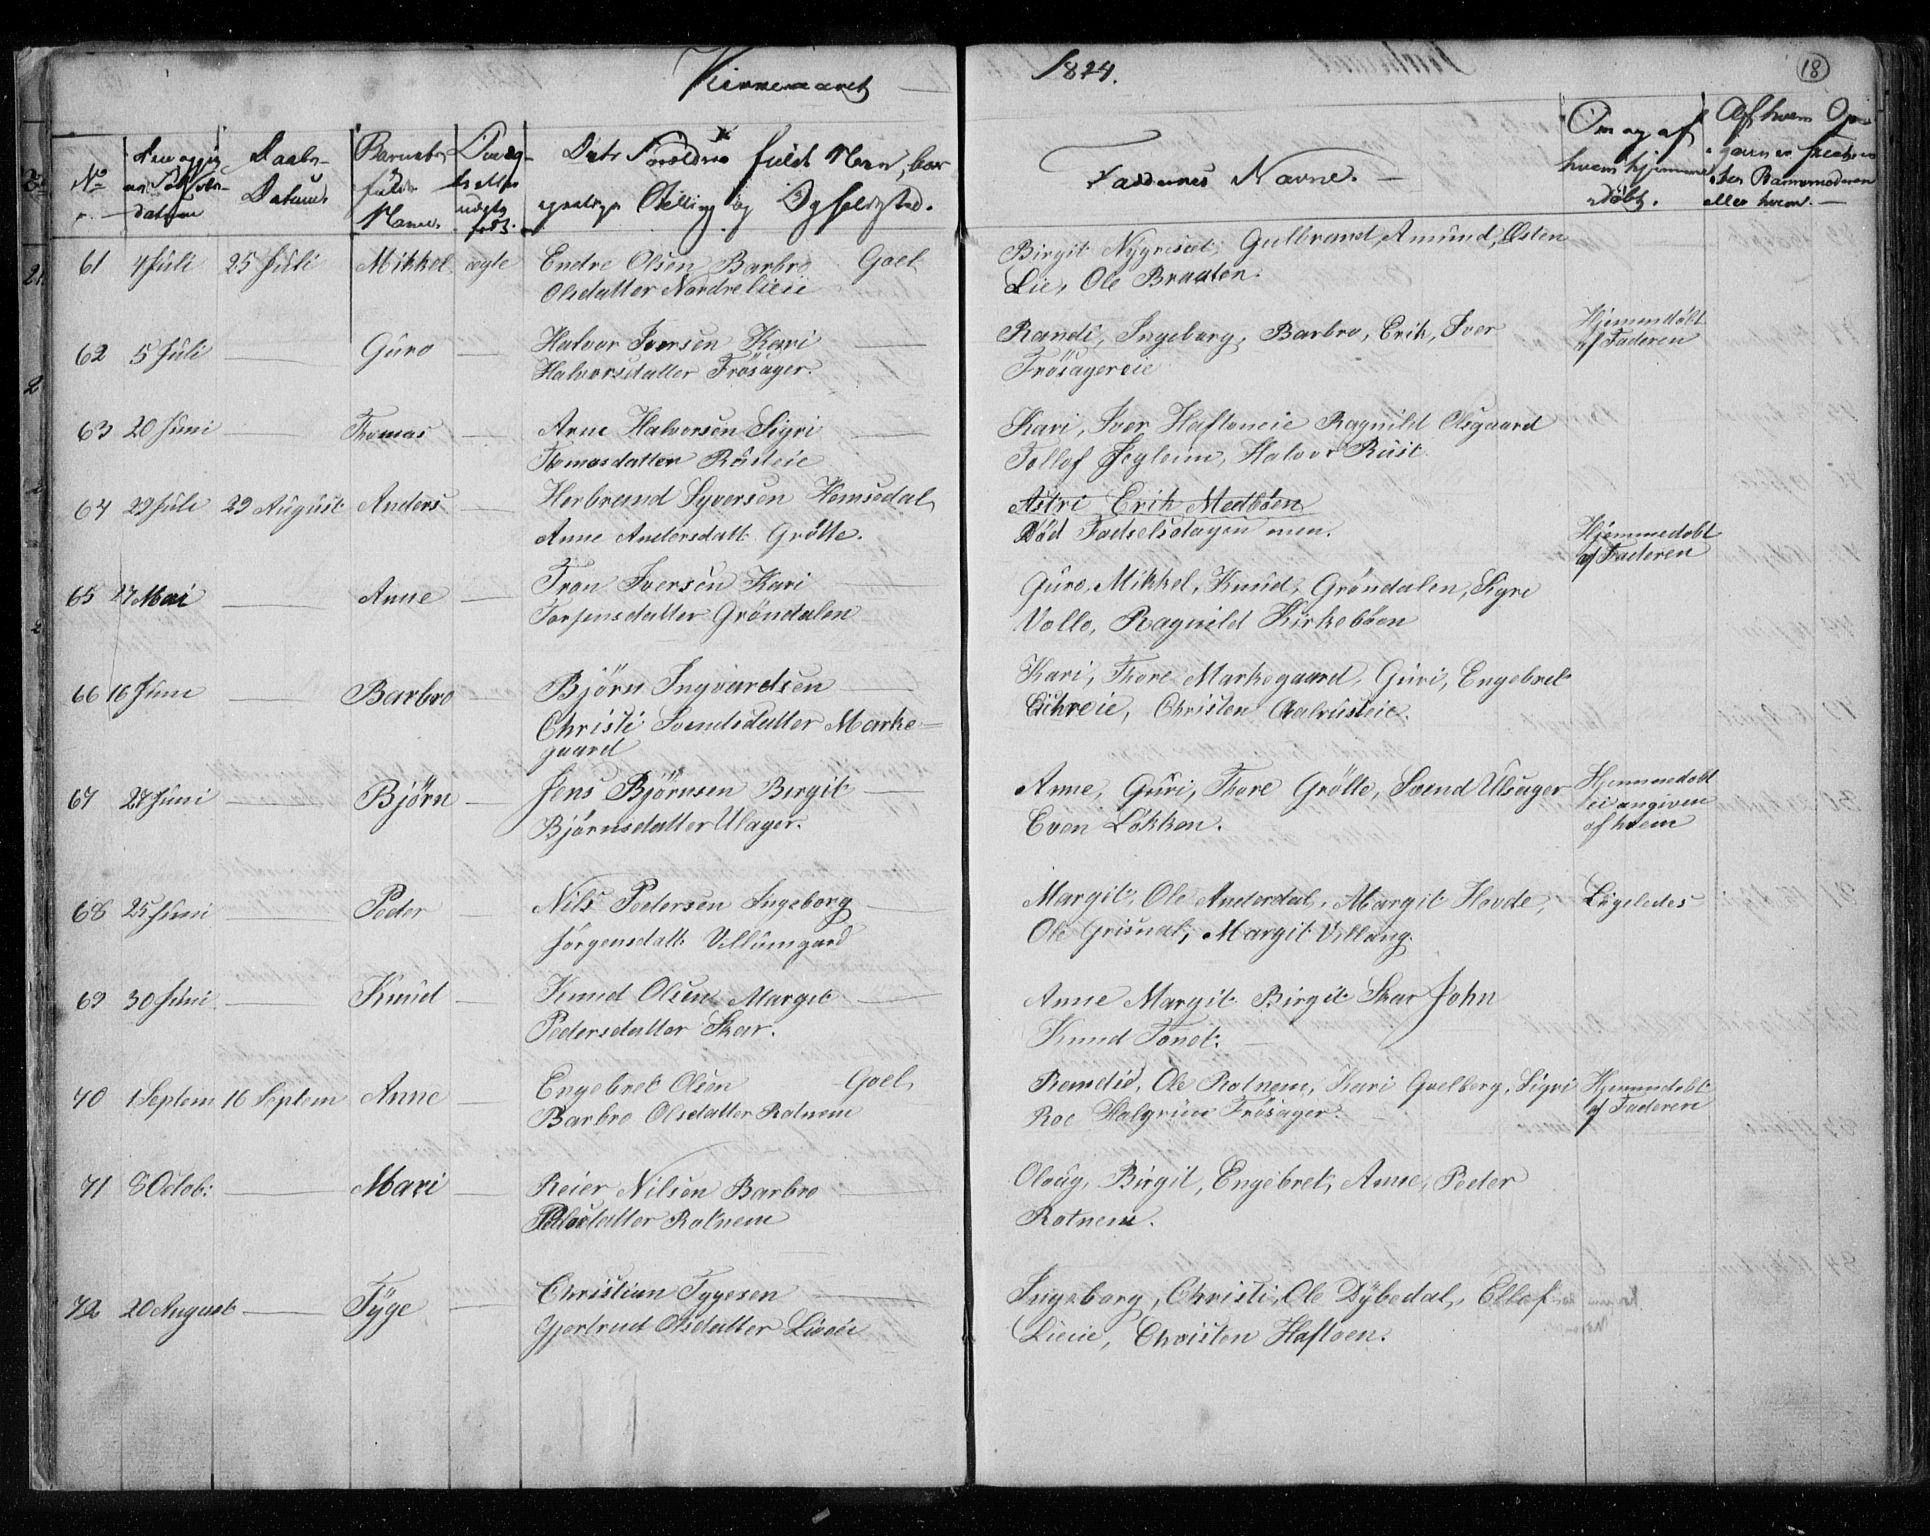 Kirkeaaret 1824.
18
No
Daabs-
Datum
Barnets
fulde
Navn.
Dets Forældres fulde Navn, bor-
gerlige Stilling og Opholdsted.
Faddernes Navne. —
Om og af
hvem hjemme
døbt.
Af hvem
eller hvem. —
61 4 Juli 25 Juli Mikkel ægte Endre Olsen Barbro Goel
Olsdatter Nordre Lieeie
Birgit Nygresæt, Gulbrand, Amund, Østen
Lie, Ole Braaten.
62 5 Juli Guro — Halvor Iversen Kari —
Halvorsdatter Frøsager.
Randi, Ingeborg, Barbro, Erik, Iver
Frøsagereie
Hjemmedøbt
af Faderen
63 20 Juni — Thomas — Arne Halvorsen Sigri —
Tomasdatter Rusteie
Kari, Iver Haftoneie Ragnild Olsgaard
Tollof Jegleim, Halvor Rust
64 29 Juli 29 August Anders — Herbrand Syversen Hemsedal
Anne Andersdatt. Grøtte.
Astri Erik Medbøen
Død Fødselsdagen men.
Hjemmedøbt
af Faderen
65 27 Mai — Anne — Tron Iversen Kari —
Torfensdatter Grøndalen
Guro, Mikkel, Knud, Grøndalen, Sigre
Volle, Ragnild Kirkebøen
66 16 Juni — Barbro — Bjørn Ingvardsen —
Christi Svendsdatter Marke-
gaard
Kari, Thore Markegaard, Guri, Engebret
Eikreie, Christen Aalrusteie.
67 27 Juni — Bjørn — Jens Bjørnsen Birgit —
Bjørnsdatter Ulsager.
Anne, Guri, Thore Grøtte, Svend Ulsager
Even Løkken.
Hjemmedøbt
ei angiven
af hvem
68 25 Juni — Peder — Nils Pedersen Ingeborg —
Jørgensdatt. Villumgard
Margit, Ole Anderdal, Margit Hovde,
Ole Grisnat, Margit Villang.
Ligeledes
69 30 Juni — Knud — Knud Olsen Margit —
Pedersdatter Skar.
Anne Margit Birgit Skar John
Knud Tonet.
70 1 Septem 16 Septem Anne — Engebret Olsen Goel
Barbro Olsdatter Rotnem
Remdid, Ole Rotnem, Kari Goelberg, Sigri
Roe Halgrim Frøsager.
Hjemmedøbt
af Faderen
71 8 Octob: — Mari — Reier Nilsen Barbro —
Palsdatter Rotnem
Oloug, Birgit, Engebret, Anne, Peder
Rotnem.
72 20 August — Tyge — Christian Tygesen —
Gjertrud Olsdatter Lieeie
Ingeborg, Christi, Ole Dybedal, Ellef
Lieeie, Christen Haftoen.